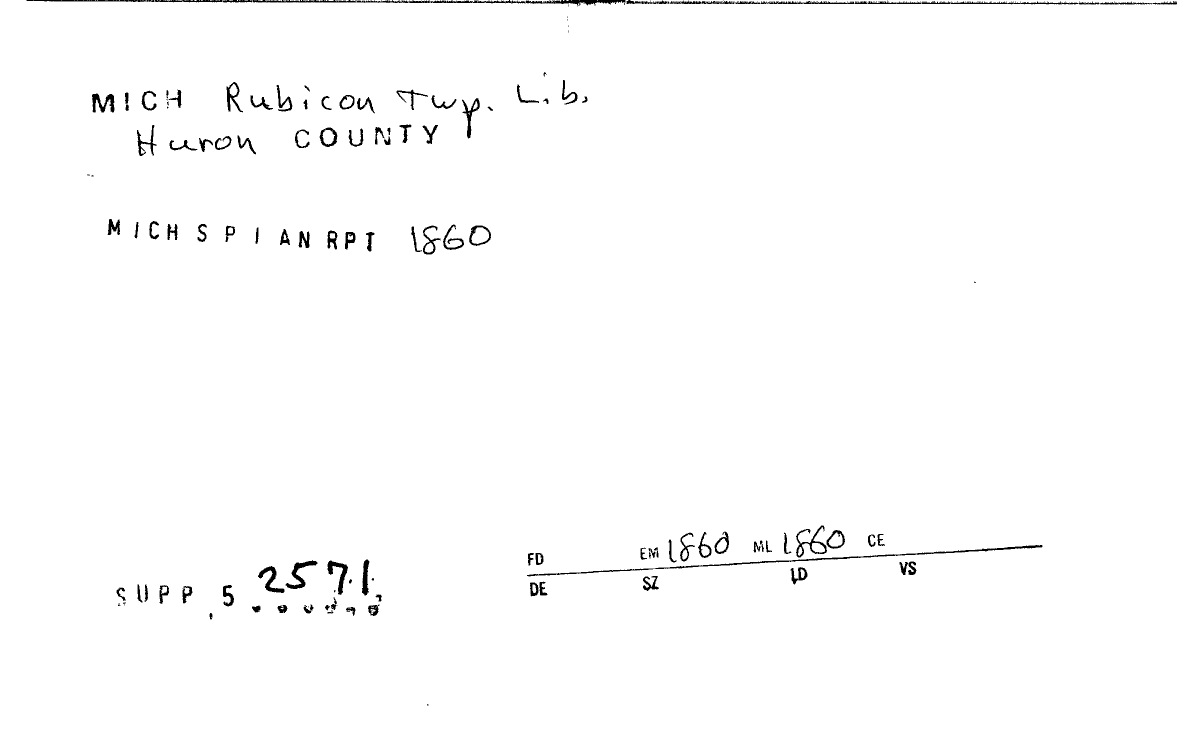 MICH Rubicon Twp. Lib.
Huron COUNTY
MICH S P I AN RPT 1860
SUPP 5 2571
FD EM 1860 ML 1860 CE
DE SZ LD VS